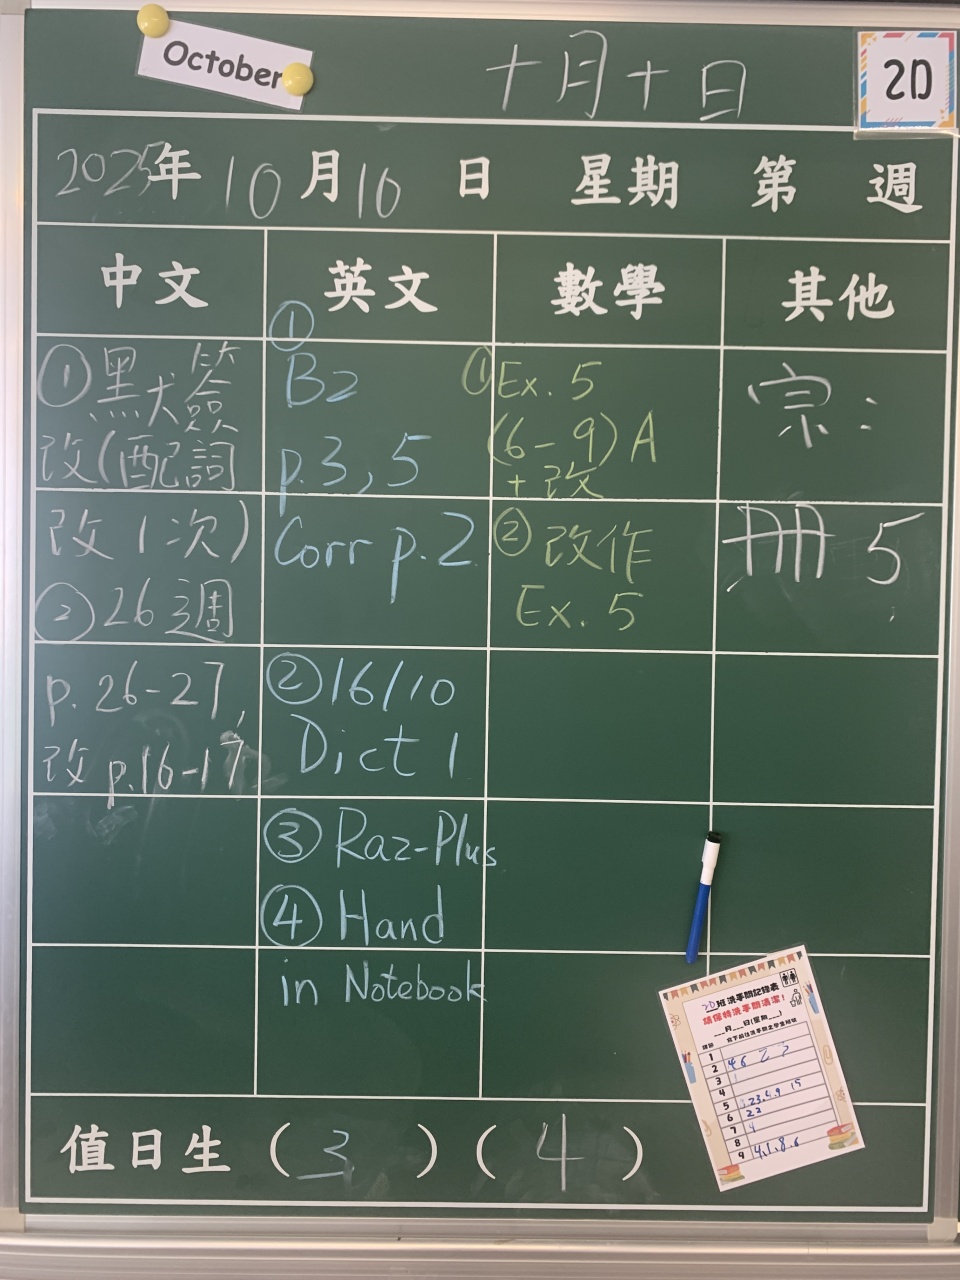 October
十月十日
2D
2025年 10 月 10 日 星期 第 週
中文 英文 數學 其他
① 默簽
改(配詞
改1次)
② 26週
p. 26-27,
改 p.16-17
①
B2
p.3, 5
Corr p.2
② 16/10
Dict 1
③ Raz-Plus
④ Hand
in Notebook
① Ex. 5
(6-9) A
+ 改
② 改作
Ex. 5
宗:
冊 5
2D班洗手間記錄表
請保持洗手間清潔!
___月___日(星期___)
1
2 46
3
4
5 23.4.9 15
6 22
7 4
8
9 4.1.8.6
值日生 ( 3 ) ( 4 )